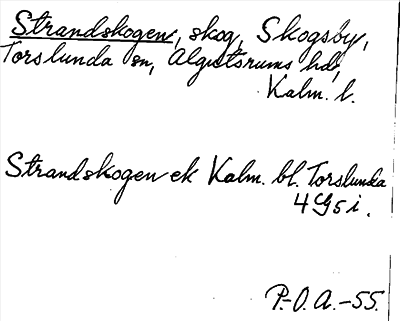 Strandskogen, skog, Skogsby,
Torslunda sn, Algutsrums hd,
Kalm. l.
Strandskogen ek Kalm. bl. Torslunda
4 G 5 i.
P.-O. A.-55.